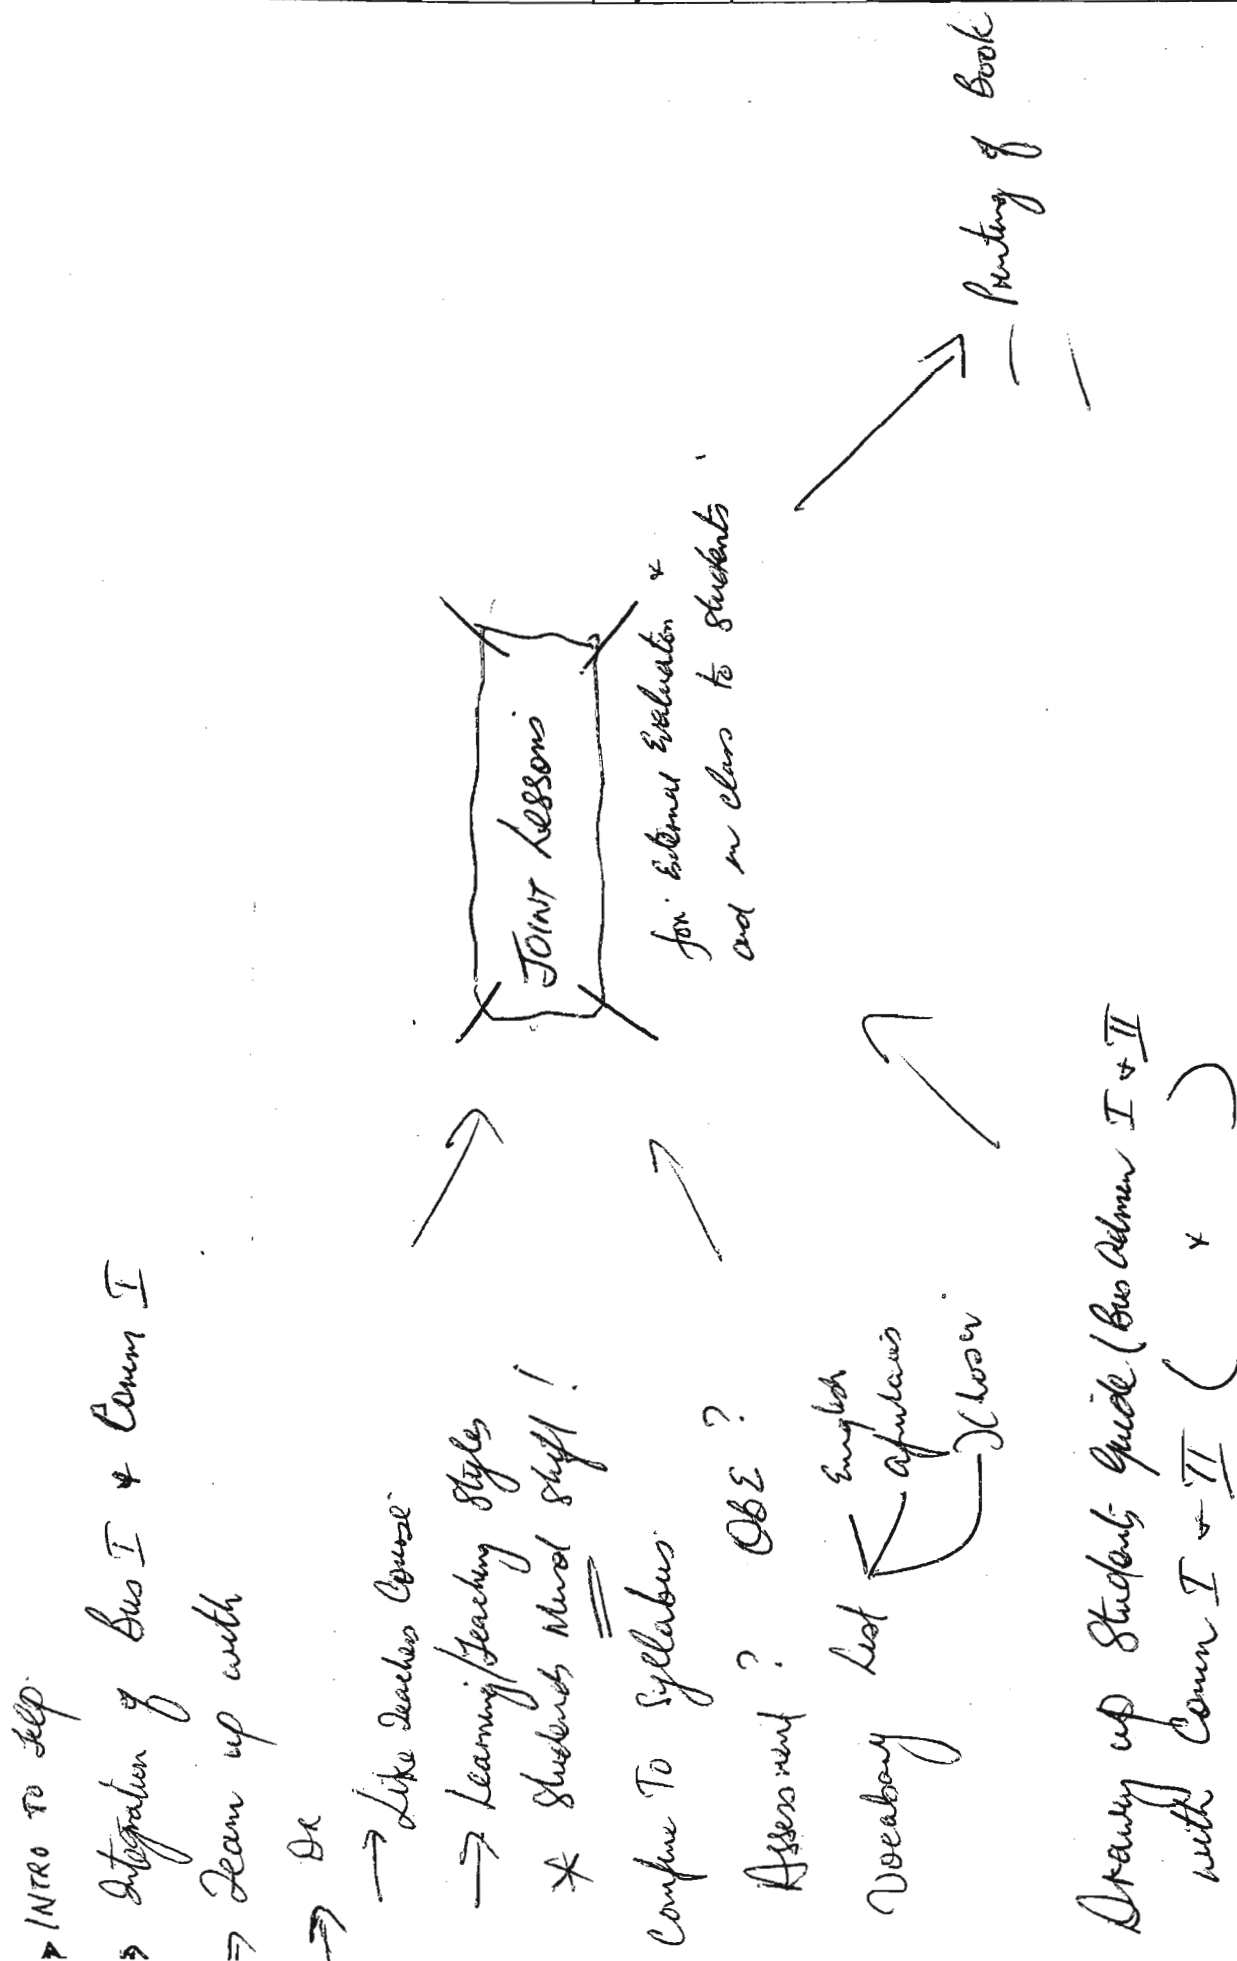 INTRO TO Self
Integration of Bus I & Comm I
⇒ Team up with
→ Dr
→ Like Teachers Course
→ Learning/Teaching Styles
* Students Mind Shift!
Confine To Syllabus
Assessment? OBE?
Vocabary List
English
Afrikaans
Xhosa
Drawing up Students Guide (Bus Admin I & II
with Comm I & II ( & )
JOINT LESSONS
for External Evaluation &
and in class to students
— Printing of Book
—